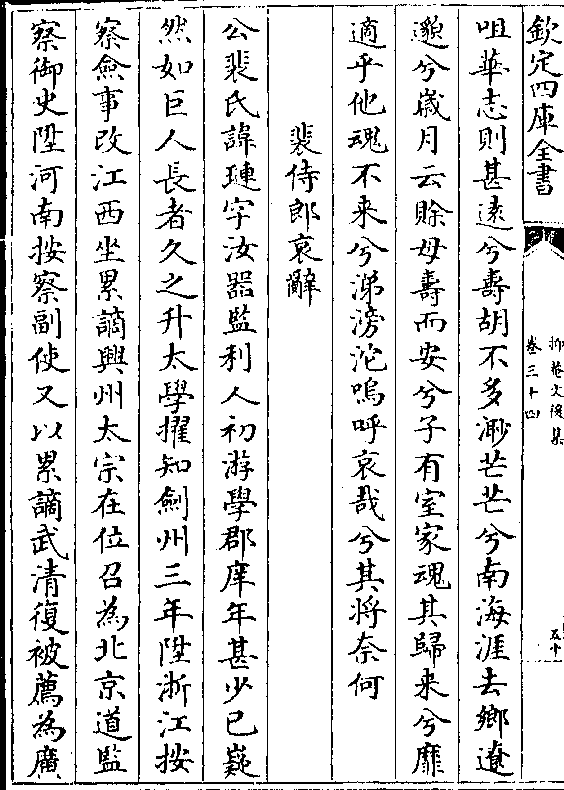 欽定四庫全書
抑菴文後集
卷三十四
五十
咀華志則甚遠兮壽胡不多渺芒芒兮南海涯去鄉遼
邈兮歲月云賒母壽而安兮子有室家魂其歸来兮靡
適乎他魂不来兮涕滂沱嗚呼哀哉兮其將奈何
裴侍郎哀辭
公裴氏諱璉字汝器監利人初游學郡庠年甚少已嶷
然如巨人長者久之升太學擢知劍州三年陞浙江按
察僉事改江西坐累謫興州太宗在位召為北京道監
察御史陞河南按察副使又以累謫武清復被薦為廣